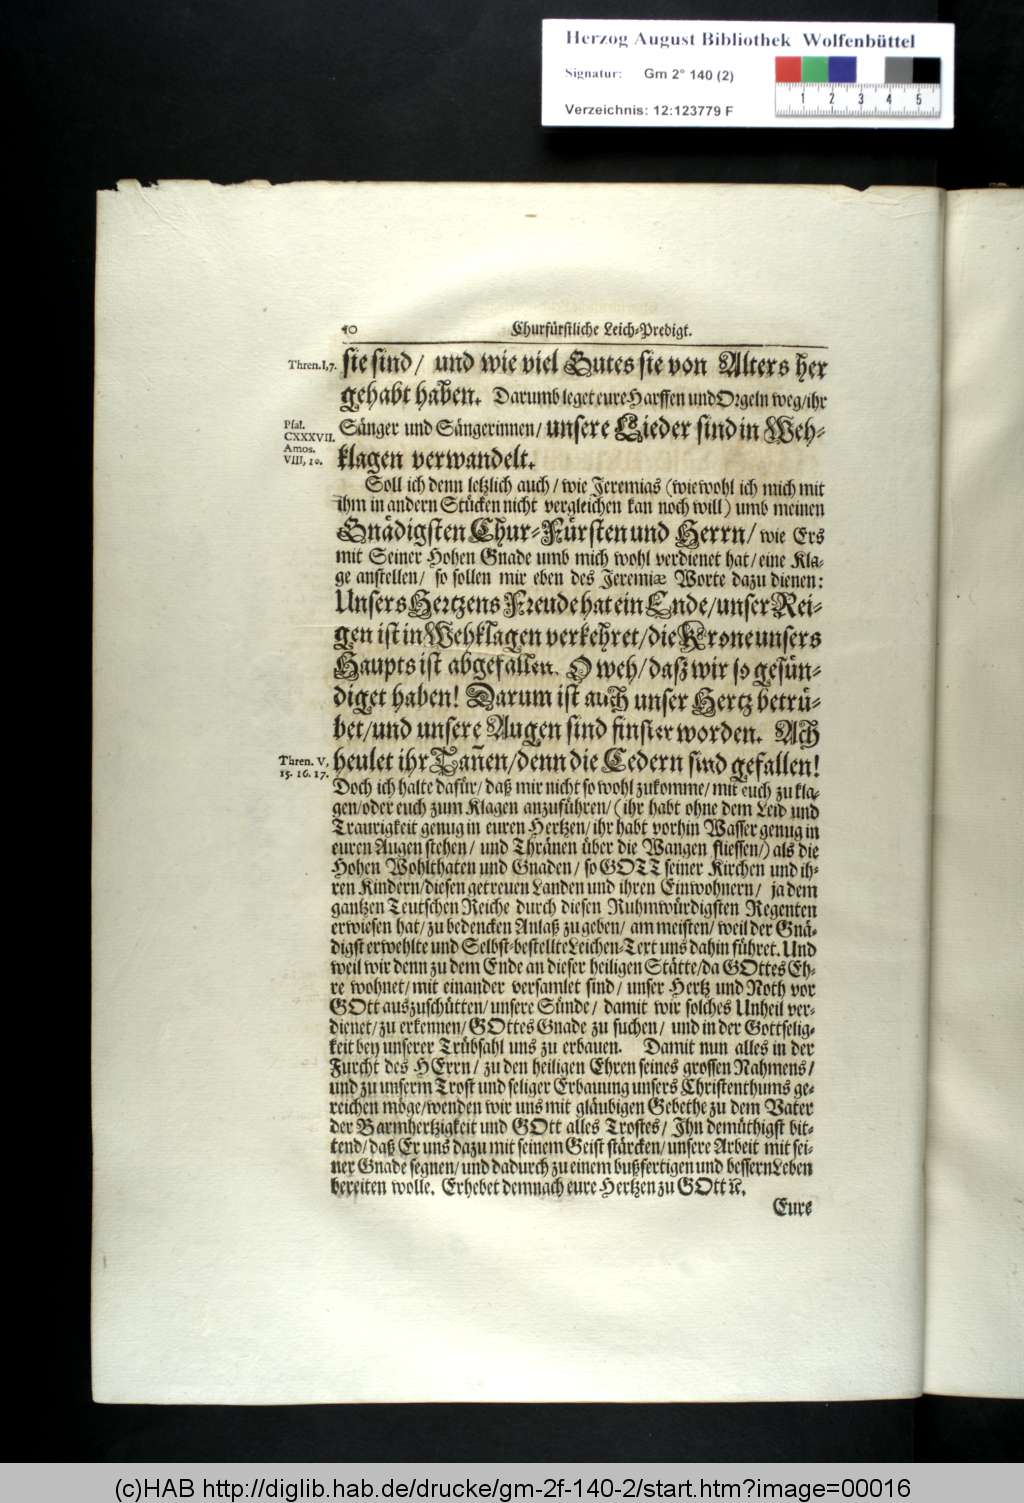 Herzog August Bibliothek Wolfenbüttel
Signatur: Gm 2° 140 (2)
1 2 3 4 5
Verzeichnis: 12:123779 F
10 Churfürstliche Leich-Predigt.
Thren.I,7. sie sind/ und wie viel Gutes sie von Alters her
gehabt haben. Darumb leget eure Harffen und Orgeln weg/ihr
Psal. CXXXVII. Amos. VIII, 10.
Sänger und Sängerinnen/ unsere Lieder sind in Weh-
klagen verwandelt.
Soll ich denn letzlich auch/ wie Jeremias (wiewohl ich mich mit
ihm in andern Stücken nicht vergleichen kan noch will) umb meinen
Gnädigsten Chur-Fürsten und Herrn/ wie Ers
mit Seiner Hohen Gnade umb mich wohl verdienet hat/ eine Kla-
ge anstellen/ so sollen mir eben des Jeremiæ Worte dazu dienen:
Unsers Hertzens Freude hat ein Ende/unser Rei-
gen ist in Wehklagen verkehret/die Krone unsers
Haupts ist abgefallen. O weh/ daß wir so gesün-
diget haben! Darum ist auch unser Hertz betrü-
bet/und unsere Augen sind finster worden. Ach
Thren. V, 15. 16. 17.
heulet ihr Tañen/denn die Cedern sind gefallen!
Doch ich halte dafür/ daß mir nicht so wohl zukomme/ mit euch zu kla-
gen/oder euch zum Klagen anzuführen/ (ihr habt ohne dem Leid und
Traurigkeit genug in euren Hertzen/ ihr habt vorhin Wasser genug in
euren Augen stehen/ und Thränen über die Wangen fliessen/) als die
Hohen Wohlthaten und Gnaden/ so GOTT seiner Kirchen und ih-
ren Kindern/diesen getreuen Landen und ihren Einwohnern/ ja dem
gantzen Teutschen Reiche durch diesen Ruhmwürdigsten Regenten
erwiesen hat/ zu bedencken Anlaß zu geben/ am meisten/ weil der Gnä-
digst erwehlte und Selbst-bestellte Leichen-Text uns dahin führet. Und
weil wir denn zu dem Ende an dieser heiligen Stätte/da GOttes Eh-
re wohnet/ mit einander versamlet sind/ unser Hertz und Noth vor
GOtt auszuschütten/ unsere Sünde/ damit wir solches Unheil ver-
dienet/ zu erkennen/ GOttes Gnade zu suchen/ und in der Gottselig-
keit bey unserer Trübsahl uns zu erbauen. Damit nun alles in der
Furcht des HErrn/ zu den heiligen Ehren seines grossen Nahmens/
und zu unserm Trost und seliger Erbauung unsers Christenthums ge-
reichen möge/wenden wir uns mit gläubigen Gebethe zu dem Vater
der Barmhertzigkeit und GOtt alles Trostes/ Ihn demüthigst bit-
tend/ daß Er uns dazu mit seinem Geist stärcken/ unsere Arbeit mit sei-
ner Gnade segnen/ und dadurch zu einem bußfertigen und bessern Leben
bereiten wolle. Erhebet demnach eure Hertzen zu GOtt ꝛc.
Eure
(c)HAB http://diglib.hab.de/drucke/gm-2f-140-2/start.htm?image=00016